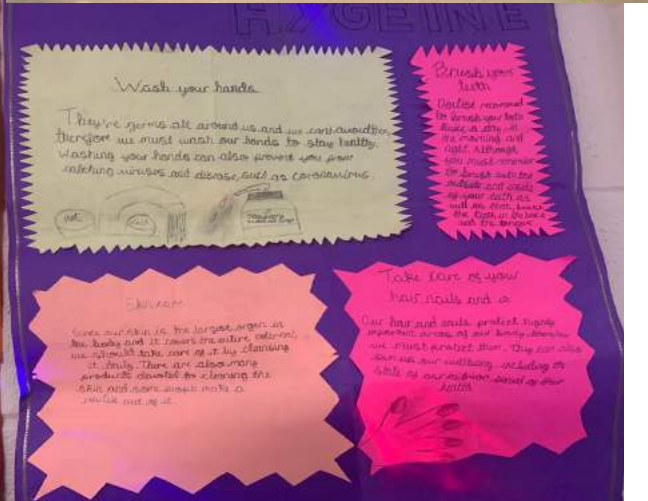 HYGEINE
Wash your hands
They're germs all around us and we cant avoid them,
therefore we must wash our hands to stay healthy.
Washing your hands can also prevent you from
catching viruses and disease, such as coronavirus.
Brush your
teeth
to brush your teeth
twice a day, in
the morning and
night. Although
you must remember
to brush both the
outside and inside
of your teeth as
well as
the teeth in the back
and the tongue
Skincare
Since our skin is the largest organ in
the body and it covers the entire
we should take care of it by cleansing
it daily. There are also many
products devoted to cleaning the
skin and some people make a
routine out of it
Take care of your
hair nails and
Our hair and nails protect highly
important areas of our body, therefore
we must protect them. They can also
us our wellbeing, including the
state of our nutrion based of their
health